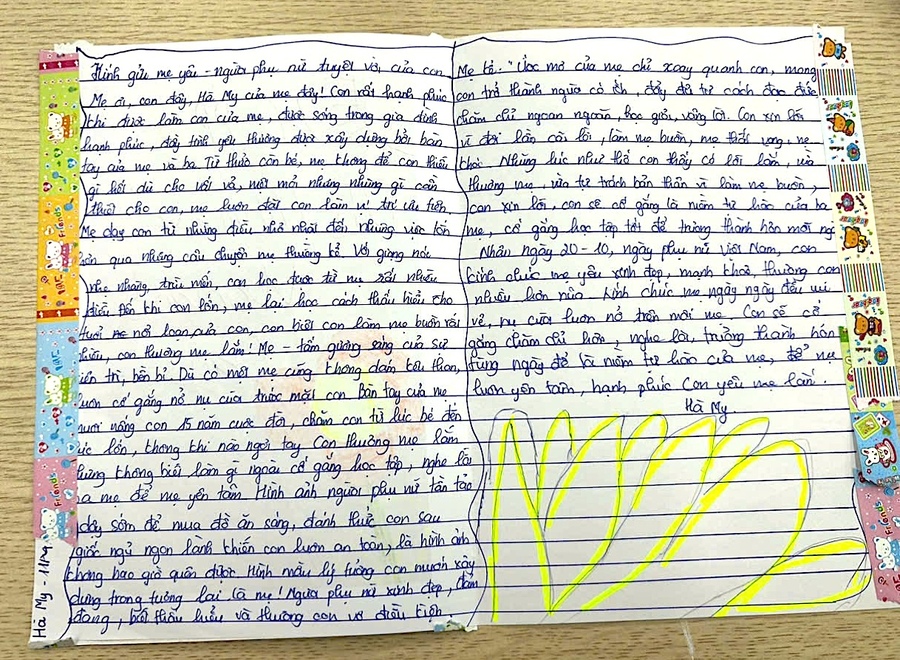 Kính gửi mẹ yêu - người phụ nữ tuyệt vời của con,
Mẹ ơi, con đây, Hà My của mẹ đây! Con rất hạnh phúc
khi được làm con của mẹ, được sống trong gia đình
hạnh phúc, đầy tình yêu thương được xây dựng bởi bàn
tay của mẹ và ba. Từ thuở còn bé, mẹ không để con thiếu
gì hết dù cho vất vả, mệt mỏi nhưng những gì cần
thiết cho con, mẹ luôn đặt con làm vị trí ưu tiên.
Mẹ dạy con từ những điều nhỏ nhặt đến những việc lớn
hơn qua những câu chuyện mẹ thường kể. Với giọng nói
nhẹ nhàng, trìu mến, con học được từ mẹ rất nhiều
điều. Đến khi con lớn, mẹ lại học cách thấu hiểu cho
tuổi nổi loạn của con, con biết con làm mẹ buồn rất
nhiều, con thương mẹ lắm! Mẹ - tấm gương sáng của sự
kiên trì, bền bỉ. Dù có mệt mẹ cũng không dám kêu than,
luôn cố gắng nở nụ cười trước mắt con. Bàn tay của mẹ
nuôi nấng con 15 năm cuộc đời, chăm con từ lúc bé đến
lúc lớn, không khi nào ngơi tay. Con thương mẹ lắm
nhưng không biết làm gì ngoài cố gắng học tập, nghe lời
ba mẹ để mẹ yên tâm. Hình ảnh người phụ nữ tần tảo
dậy sớm để mua đồ ăn sáng, đánh thức con sau
giấc ngủ ngon lành khiến con luôn an toàn, là hình ảnh
không bao giờ quên được. Hình mẫu lý tưởng con muốn xây
dựng trong tương lai là mẹ! Người phụ nữ xinh đẹp, đảm
đang, biết thấu hiểu và thương con vô điều kiện
Mẹ tôi. "Ước mơ của mẹ chỉ xoay quanh con, mong
con trở thành người có ích, đầy đủ tư cách đạo đức,
chăm chỉ ngoan ngoãn, học giỏi, vâng lời. Con xin lỗi
vì đôi lần cãi lời, làm mẹ buồn, mẹ thất vọng, mẹ
khóc. Những lúc như thế con thấy có lỗi lắm, vừa
thương mẹ, vừa tự trách bản thân vì làm mẹ buồn,
con xin lỗi, con sẽ cố gắng là niềm tự hào của ba
mẹ, cố gắng học tập tốt để trưởng thành hơn mỗi ngày
Nhân ngày 20-10, ngày phụ nữ Việt Nam, con
kính chúc mẹ yêu xinh đẹp, mạnh khoẻ, thương con
nhiều hơn nữa. Kính chúc mẹ ngày ngày đều vui
vẻ, nụ cười luôn nở trên môi mẹ. Con sẽ cố
gắng chăm chỉ hơn, nghe lời, trưởng thành hơn
từng ngày để là niềm tự hào của mẹ, để mẹ
luôn yên tâm, hạnh phúc. Con yêu mẹ lắm!
Hà My.
Hà My - 11A9
Friends
Friends
Friends